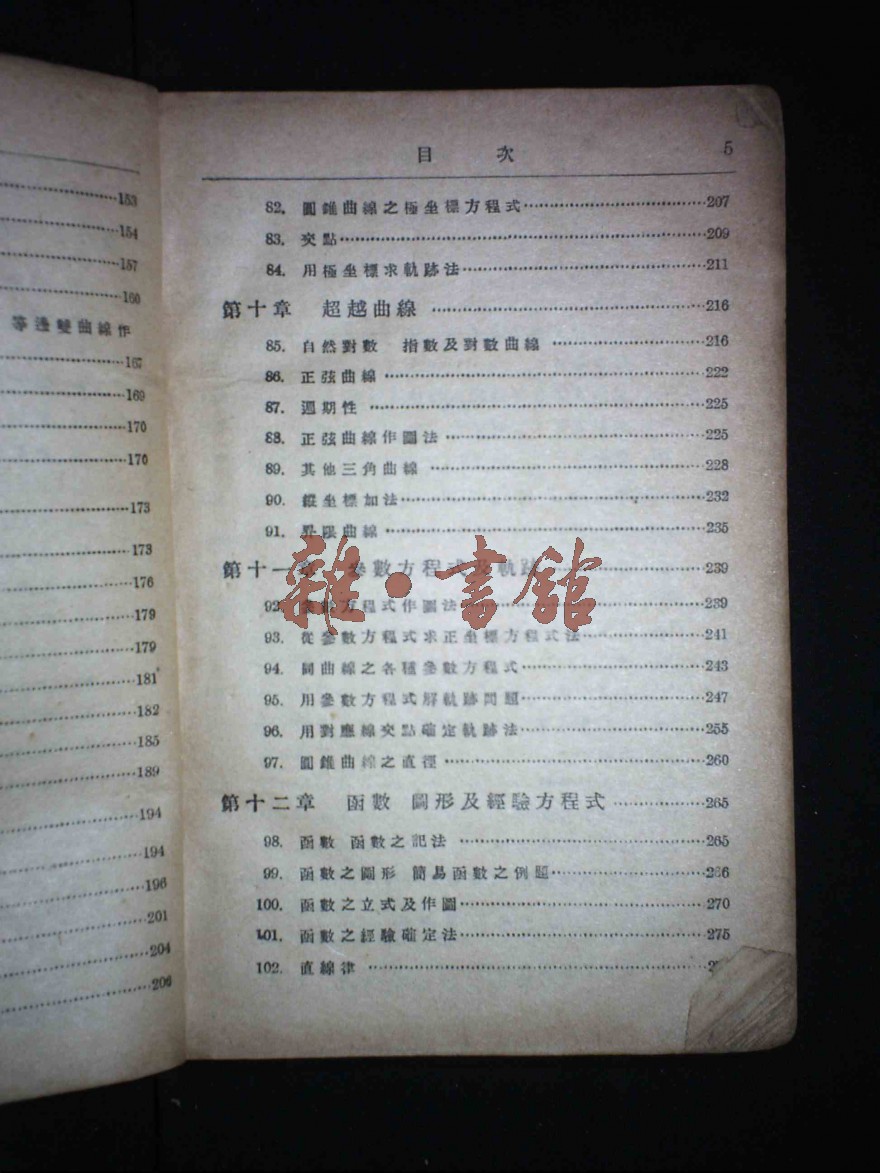 153
154
157
160
等邊雙曲線作
167
169
170
170
173
173
176
179
179
181
182
185
189
194
194
196
201
204
206
目 次 5
82. 圓錐曲線之極坐標方程式 207
83. 交點 209
84. 用極坐標求軌跡法 211
第十章 超越曲線 216
85. 自然對數 指數及對數曲線 216
86. 正弦曲線 222
87. 週期性 225
88. 正弦曲線作圖法 225
89. 其他三角曲線 228
90. 縱坐標加法 232
91. 界限曲線 235
第十一章 參數方程式及軌跡 239
92. 方程式作圖法 239
93. 從參數方程式求正坐標方程式法 241
94. 同曲線之各種參數方程式 243
95. 用參數方程式解軌跡問題 247
96. 用對應線交點確定軌跡法 255
97. 圓錐曲線之直徑 260
第十二章 函數 圖形及經驗方程式 265
98. 函數 函數之記法 265
99. 函數之圖形 簡易函數之例題 266
100. 函數之立式及作圖 270
101. 函數之經驗確定法 275
102. 直線律
雜·書館